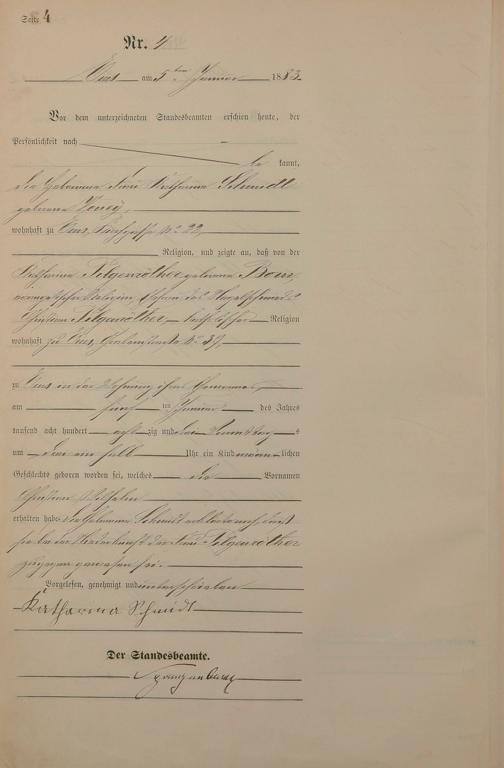 Seite 4
Nr. 4
Ems am 5ten Januar 1883
Vor dem unterzeichneten Standesbeamten erschien heute, der
Persönlichkeit nach
be kannt,
die Hebamme Frau Katharina Schmidt
geborene
wohnhaft zu Ems, No 22,
Religion, und zeigte an, daß von der
Katharina Filgenröther geborene
evangelischer Religion, Ehefrau des
Christian Filgenröther, katholischer Religion
wohnhaft zu Ems, No 37,
zu Ems in der Wohnung ihres Ehemannes,
am fünf ten Januar des Jahres
tausend acht hundert acht zig und drei Vormittag s
um ein halb Uhr ein Kind männ lichen
Geschlechts geboren worden sei, welches die Vornamen
Christian Wilhelm
erhalten habe. Die Hebamme Schmidt erklärte noch, daß
sie bei der Niederkunft der Frau Filgenröther
zugegen gewesen sei.
Vorgelesen, genehmigt und unterschrieben
Katharina Schmidt
Der Standesbeamte.